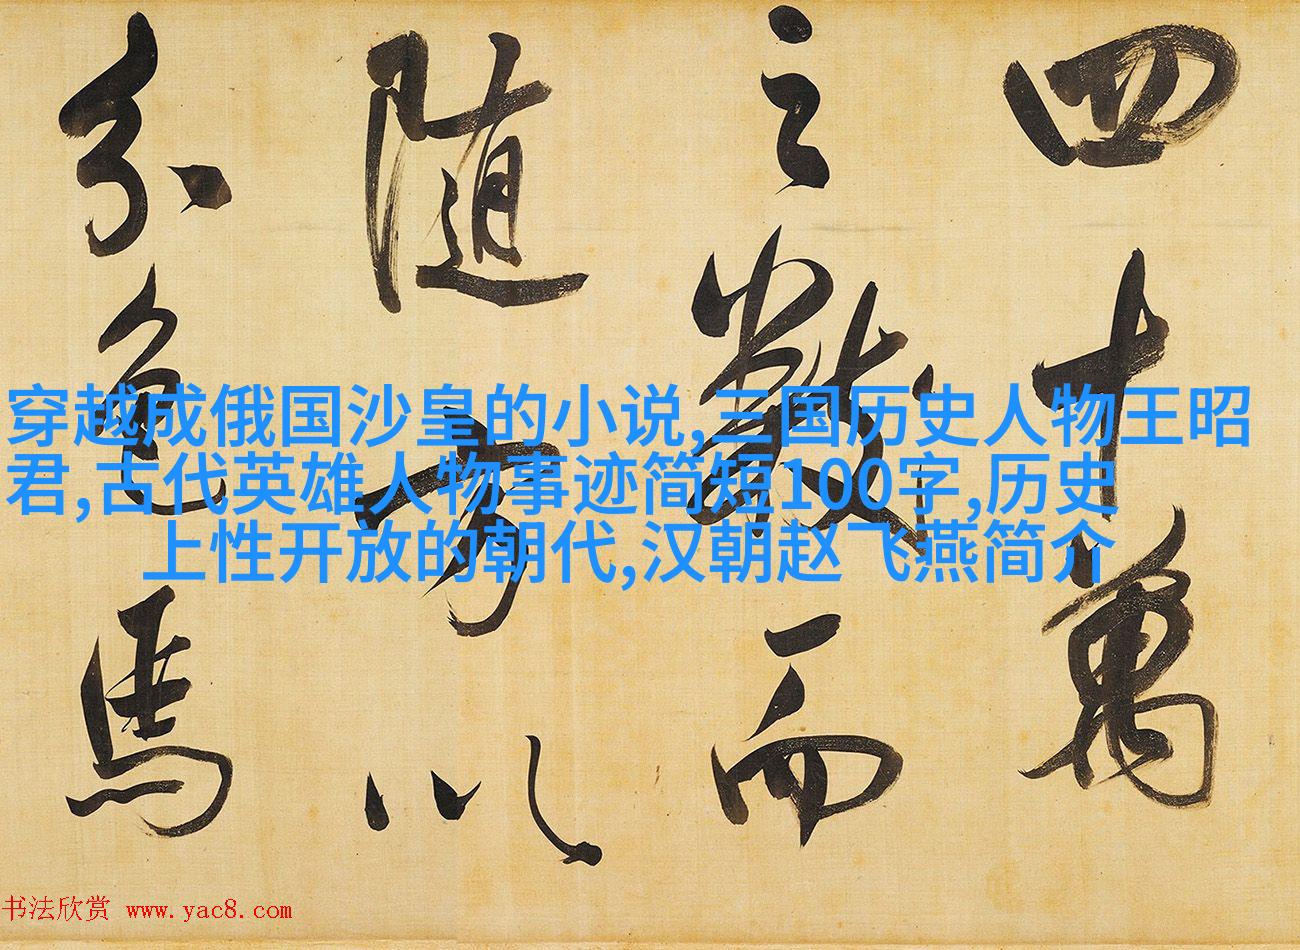 四十萬
之數而
隨方以
分色馬
穿越成俄国沙皇的小说,三国历史人物王昭
君,古代英雄人物事迹简短100字,历史
上性开放的朝代,汉朝赵飞燕简介
书法欣赏 www.yac8.com